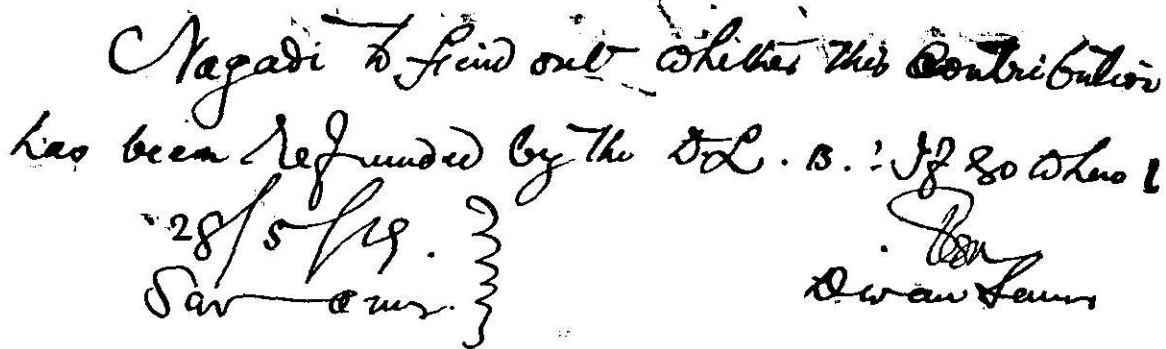 Nagadi to find out whether this contribution
has been refunded by the D. L. B.? If so when?
28/5/19.
Dewan Saun